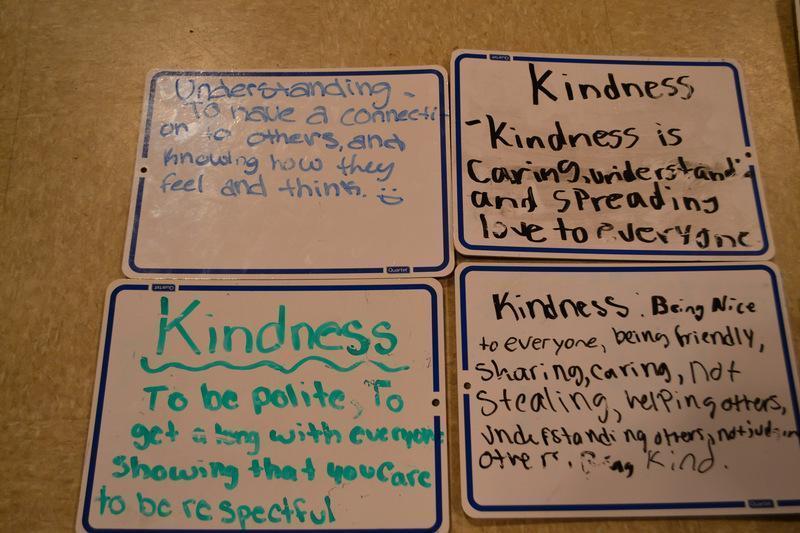 Understanding -
To have a connecti
on to others, and
knowing how they
feel and think. :)
Quartet
Quartet
Kindness
-Kindness is
Caring, understandi
and spreading
love to everyone.
Quartet
Kindness
To be polite, To
get along with everyone
showing that you care
to be respectful
Kindness: Being Nice
to everyone, being friendly,
sharing, caring, not
stealing, helping others,
understanding others, not judgin
others. Being Kind.
Quartet